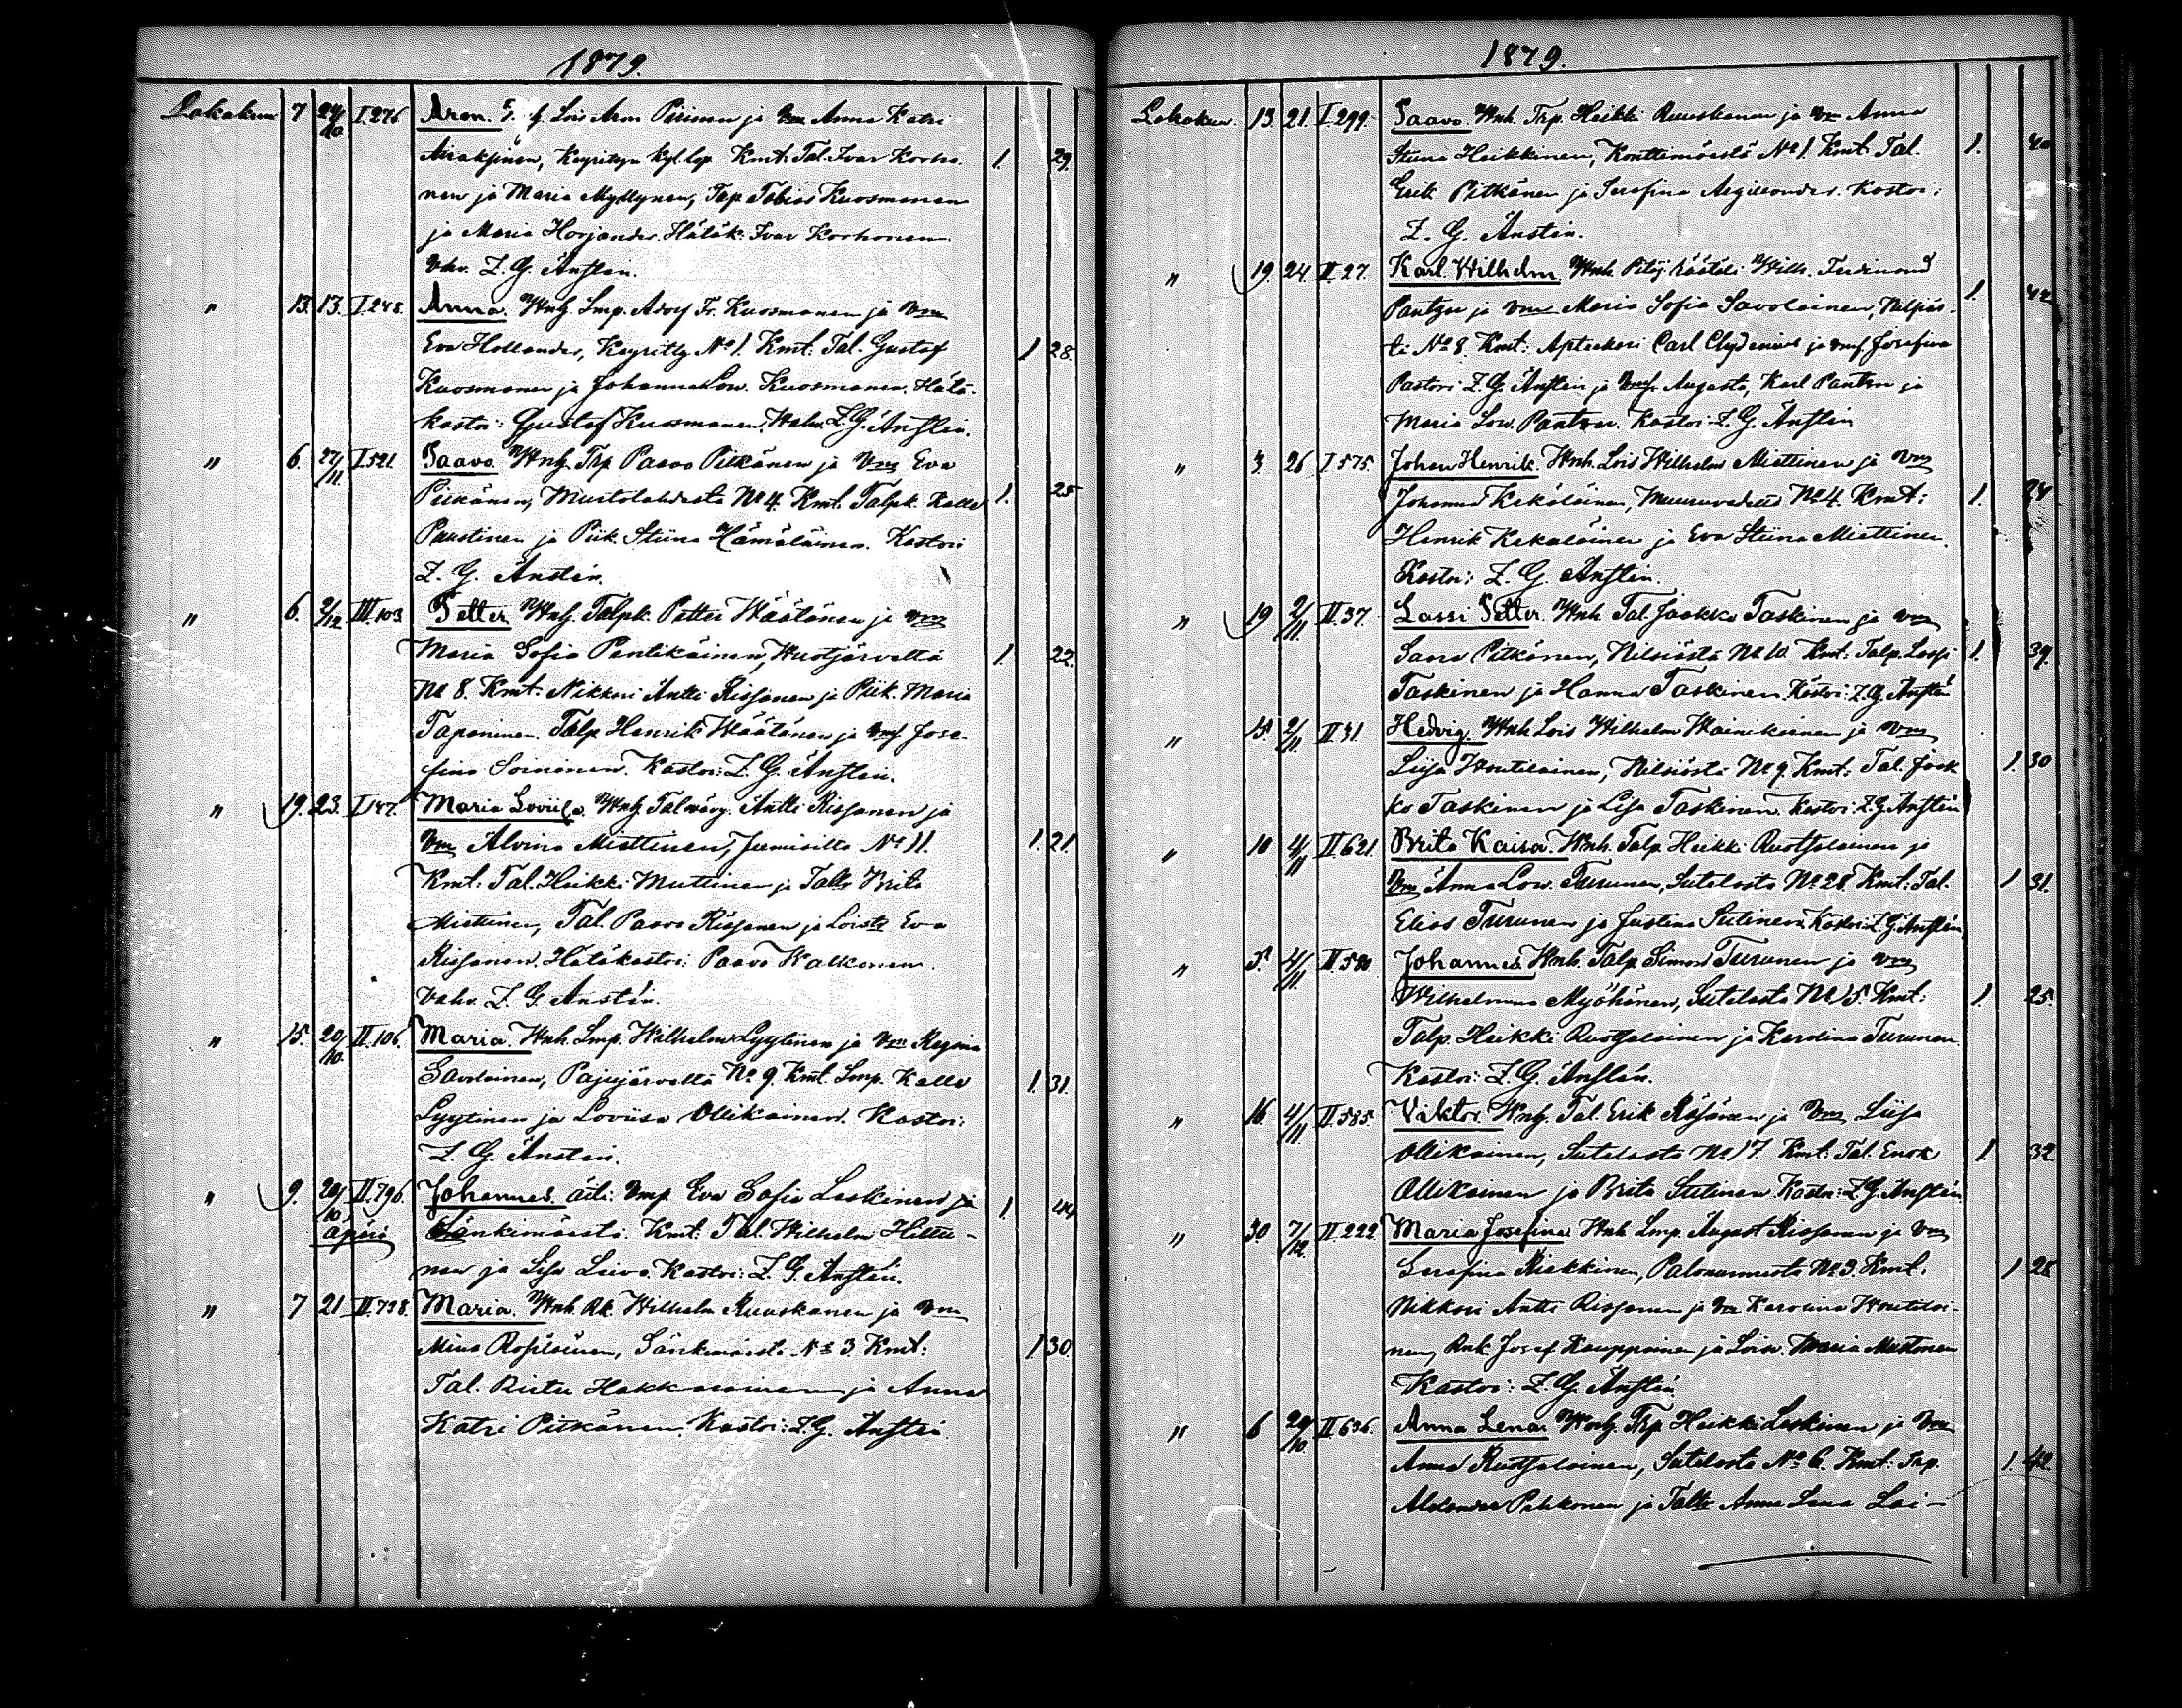 1879.
Lokakuu 7 24/10 I.276 Aron. V. Lois Aron Piirinen ja Vm Anna Katri
Airaksinen, Keyrityn kyl. lap. Kmt. Tal. Ivar Korho- 1. 29.
nen ja Maria Myllynen, Tap. Tobias Kuosmanen
ja Maria Horjander. Hätäk. Ivar Korhonen.
Vahv. Z. G. Ånstén.
" 13. 13. I.248. Anna. Wnh. Lmp. Adolf Fr. Kuosmanen ja Vm
Eva Hollander, Keyritty No 1. Kmt. Tal. Gustaf 1 28.
Kuosmanen ja Johanna Lov. Kuosmanen. Hätä-
kastoi: Gustaf Kuosmanen. Wahv. Z. G. Ånstén.
" 6. 27/11 I.521 Paavo. Wnh. Trp. Paavo Pitkänen ja Vm Eva
Pitkänen, Mustolahdesta No 4. Kmt. Talpk. Kalle 1. 25
Puustinen ja Piik. Stiina Hämäläinen. Kastoi
Z. G. Ånstén.
" 6. 2/12 III.103 Petter. Wnh. Talpk. Petter Wäätänen ja Vm
Maria Sofia Pentikäinen, Wuotjärveltä 1. 22.
No 8. Kmt. Nikkari Antti Rissanen ja Piik. Maria
Taponinen. Talp. Henrik Wäätänen ja Vmf Jose-
fina Soininen. Kastoi: Z. G. Ånstén.
" 19. 23. I.147. Maria Loviisa. Wnh. Talwäwy. Antti Rissanen ja
Vm Alvina Miettinen, Jumisilta No 11. 1. 21.
Kmt. Tal. Heikki Miettinen ja Taltr Brita
Miettinen, Tal. Paavo Rissanen ja Loistr Eva
Rissanen. Hätäkastoi: Paavo Walkonen.
Vahv. Z. G. Ånstén.
" 15. 20/10. II.106. Maria. Wnh. Lmp. Wilhelm Lyytinen ja Vm Regina
Savolainen, Pajujärveltä No 9. Kmt. Lmp. Kalle 1. 31.
Lyytinen ja Loviisa Ollikainen. Kastoi:
Z. G. Ånstén.
" 9. 20/10 II.790. Johannes. äiti: Vmp. Eva Sofia Laskinen ja 1. 44
äpärä Sänkimäestä. Kmt. Tal. Wilhelm Hiltu-
nen ja Lisa Leivo. Kastoi: Z. G. Ånstén.
" 7 21 II.738. Maria. Wnh. Rk. Wilhelm Ruuskanen ja Vm
Mina Rossiläinen, Sänkimäestä No 3. Kmt. 1. 30.
Tal. Pietu Hakkarainen ja Anna
Katri Pitkänen. Kastoi: Z. G. Ånstén.
1879.
Lokakuu. 13. 21. I.299. Paavo. Wnh. Trp. Heikki Ruuskanen ja Vm Anna
Stiina Heikkinen, Konttimäestä No 1. Kmt. Tal. 1. 40
Erik Pitkänen ja Serafina Argillander. Kastoi:
Z. G. Ånstén.
" 19. 24 II.27. Karl Wilhelm. Wnh. Pitäj. räätäli Wilh. Ferdinand
Pantzar ja Vm Maria Sofia Savolainen, Nilsiäs- 1. 42
tä No 8. Kmt: Aptekari Carl Clydenius ja Vmf Josefina
Pastori Z. G. Ånstén ja Vmf Augusta, Karl Pantzar ja
Maria Lov. Pantzar. Kastoi: Z. G. Ånstén
" 3. 26 I.575. Johan Henrik. Wnh. Lois Wilhelm Miettinen ja Vm
Johanna Kekäläinen, Muuruvedeltä No 4. Kmt: 1. 24
Henrik Kekäläinen ja Eva Stiina Miettinen.
Kastoi: Z. G. Ånstén.
" 19 2/11 II.37. Lassi Petter. Wnh. Tal. Jaakko Taskinen ja Vm
Saara Pitkänen, Nilsiästä No 10 Kmt: Talp. Lassi 1. 39.
Taskinen ja Hanna Taskinen. Kastoi: Z. G. Ånstén
" 15. 2/11 II.31. Hedvig. Wnh. Lois Wilhelm Wainikainen ja Vm
Liisa Woutilainen, Nilsiästä No 9. Kmt: Tal. Jaak 1. 30
ko Taskinen ja Lisa Taskinen. Kastoi: Z. G. Ånstén
" 10 4/11 II.621. Brita Kaisa. Wnh. Talp. Heikki Ruotsalainen ja
Vm Anna Lov. Turunen, Sutelasta No 28. Kmt: Tal. 1 31.
Elias Turunen ja Justina Sutinen. Kastoi: Z. G. Ånstén
" 5. 4/11 II.580 Johannes. Wnh. Talp. Simon Turunen ja Vm
Wilhelmina Myöhänen, Sutelasta No 15. Kmt: 1 25.
Talp. Heikki Ruotsalainen ja Karolina Turunen.
Kastoi: Z. G. Ånstén.
" 16. 4/11 II.585. Viktor. Wnh. Tal. Erik Rissanen ja Vm Liisa
Ollikainen, Sutelasta No 17. Kmt: Tal. Enok 1. 32
Ollikainen ja Brita Sutinen. Kastoi: Z. G. Ånstén.
" 30. 7/12. II.222. Maria Josefina. Wnh. Lmp. August Rissanen ja Vm
Serafina Niskkinen, Palonurmesta No 3. Kmt. 1 28
Nikkari Antti Rissanen ja Vm Karolina Woutilai-
nen, Rnk. Josef Kauppinen ja Loisv. Maria Mustonen
Kastoi: Z. G. Ånstén
" 6 29/10. II.636. Anna Lena. Wnh. Trp. Heikki Laskinen ja Vm
Anna Ruotsalainen, Sutelasta No 6. Kmt: Trp. 1. 42.
Aleksander Pehkonen ja Taltr Anna Lena Lai-